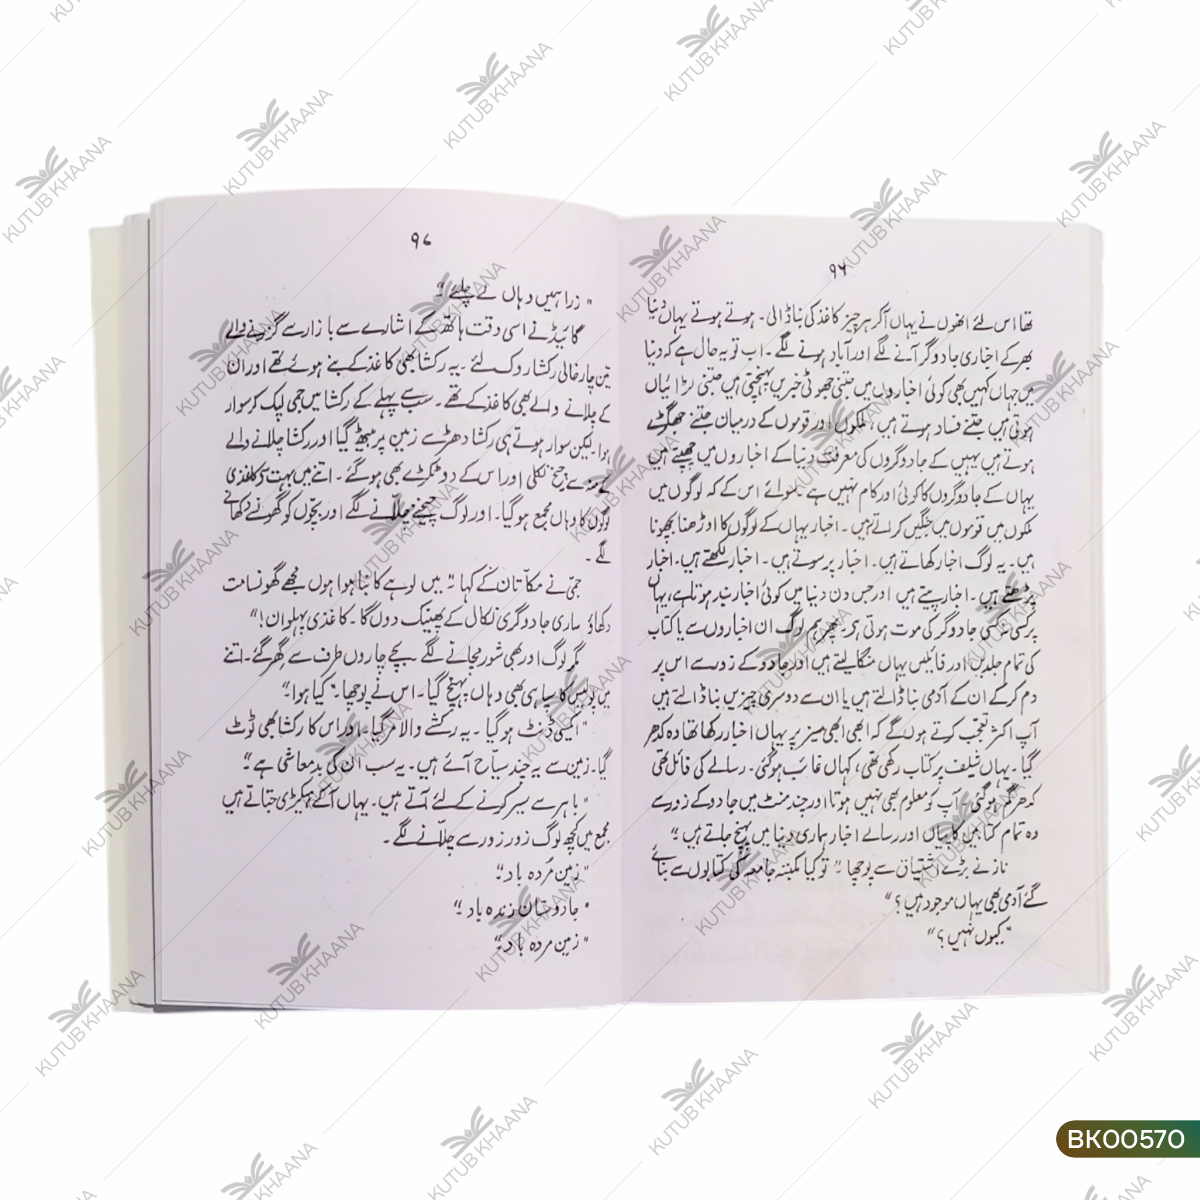 ۹۶
تھا اس لئے انھوں نے یہاں آکر ہر چیز کاغذ کی بنا ڈالی۔ ہوتے ہوتے یہاں دنیا
بھر کے اخباری جادوگر آنے لگے اور آباد ہونے لگے۔ اب تو یہ حال ہے کہ دنیا
میں جہاں کہیں بھی کوئی اخباروں میں جتنی جھوٹی خبریں پہنچتی ہیں جتنی لڑائیاں
ہوتی ہیں جتنے فساد ہوتے ہیں، ملکوں اور قوموں کے درمیان جتنے جھگڑے
ہوتے ہیں یہیں کے جادوگروں کی معرفت دنیا کے اخباروں میں چھپتے ہیں
یہاں کے جادوگروں کا کوئی اور کام نہیں ہے سوائے اس کے کہ لوگوں میں
ملکوں میں قوموں میں جنگیں کراتے ہیں۔ اخبار یہاں کے لوگوں کا اوڑھنا بچھونا
ہیں۔ یہ لوگ اخبار کھاتے ہیں۔ اخبار پر سوتے ہیں۔ اخبار لکھتے ہیں۔ اخبار
پڑھتے ہیں۔ اخبار پیتے ہیں اور جس دن دنیا میں کوئی اخبار بند ہوتا ہے، یہاں
پر کسی نہ کسی جادوگر کی موت ہوتی ہے۔ پھر ہم لوگ ان اخباروں سے یا کتاب
کی تمام جلدیں اور فائلیں یہاں منگا لیتے ہیں اور جادو کے زور سے اس پر
دم کر کے ان کے آدمی بنا ڈالتے ہیں یا ان سے دوسری چیزیں بنا ڈالتے ہیں
آپ اکثر تعجب کرتے ہوں گے کہ ابھی ابھی میز پر یہاں اخبار رکھا تھا وہ کدھر
گیا۔ یہاں شیلف پر کتاب رکھی تھی، کہاں غائب ہوگئی۔ رسالے کی فائل تھی
کدھر گم ہوگئی۔ آپ کو معلوم بھی نہیں ہوتا اور چند منٹ میں جادو کے زور سے
وہ تمام کتابیں کاپیاں اور رسالے اخبار ہماری دنیا میں پہنچ جاتے ہیں۔"
ناز نے بڑے اشتیاق سے پوچھا۔ "تو کیا مکتبہ جامعہ کی کتابوں سے بنائے
گئے آدمی بھی یہاں موجود ہیں؟"
"کیوں نہیں؟"
۹۷
"ذرا ہمیں وہاں لے چلئے۔"
گائیڈ نے اسی وقت ہاتھ کے اشارے سے بازار سے گزرنے والے
تین چار خالی رکشا روک لئے۔ یہ رکشا بھی کاغذ کے بنے ہوئے تھے اور ان
کے چلانے والے بھی کاغذ کے تھے۔ سب سے پہلے کے رکشا میں جمی لپک کر سوار
ہوا۔ لیکن سوار ہوتے ہی رکشا دھڑ سے زمین پر بیٹھ گیا اور رکشا چلانے والے
کے منہ سے چیخ نکلی اور اس کے دو ٹکڑے بھی ہوگئے۔ اتنے میں بہت سے کاغذی
لوگوں کا وہاں مجمع ہوگیا۔ اور لوگ چیخنے چلّانے لگے اور بچّوں کو گھونسے دکھانے
لگے۔
جمی نے مکّا تان کے کہا۔ "میں لوہے کا بنا ہوا ہوں مجھے گھونسا مت
دکھاؤ ساری جادوگری نکال کے پھینک دوں گا۔ کاغذی پہلوان!"
مگر لوگ اور بھی شور مچانے لگے بچّے چاروں طرف سے گھر گئے۔ اتنے
میں پولیس کا سپاہی بھی وہاں پہنچ گیا۔ اس نے پوچھا۔ "کیا ہوا۔"
"ایکسی ڈنٹ ہوگیا۔ یہ رکشے والا مر گیا۔ اور اس کا رکشا بھی ٹوٹ
گیا۔ زمین سے یہ چند سیّاح آئے ہیں۔ یہ سب ان کی بدمعاشی ہے۔"
"باہر سے سیر کرنے کے لئے آتے ہیں۔ یہاں آکے ہیکڑی جتاتے ہیں
مجمع میں کچھ لوگ زور زور سے چلّانے لگے۔
"زمین مُردہ باد۔"
"جادوستان زندہ باد۔"
"زمین مردہ باد۔"
BK00570
KUTUB KHAANA